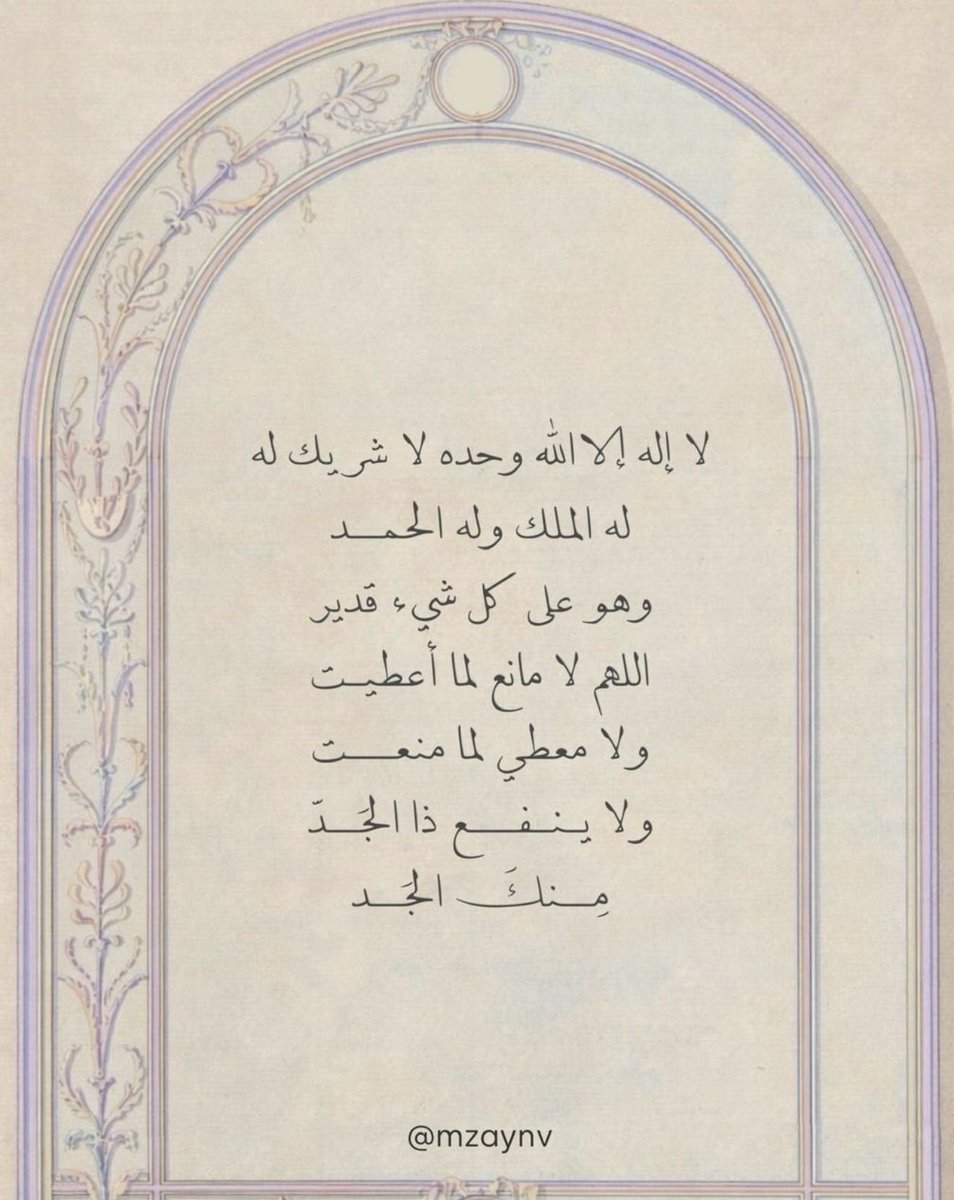 لا إله إلا الله وحده لا شريك له
له الملك وله الحمـــد
وهو على كل شيء قدير
اللهم لا مانع لما أعطيـت
ولا معطي لما منعـــت
ولا يـنـفـــع ذا الجَــدّ
مِــنـكَ الجَــد
@mzaynv